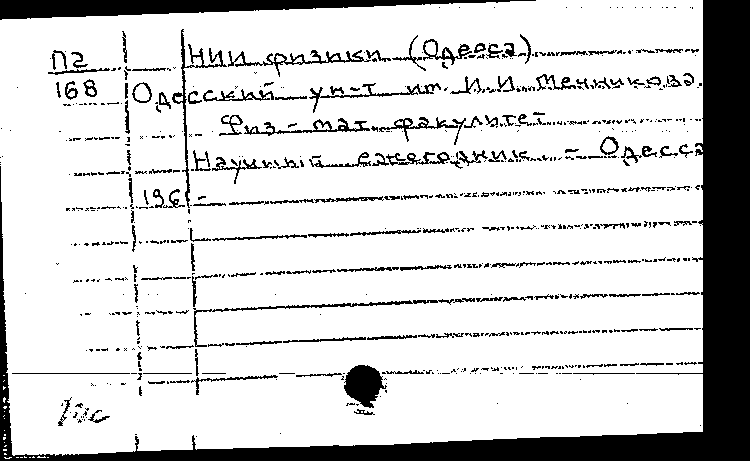 П2 НИИ физики (Одесса)
168 Одесский ун-т им. И.И. Мечникова.
Физ-мат. факультет
Научный ежегодник. - Одесса
1961-